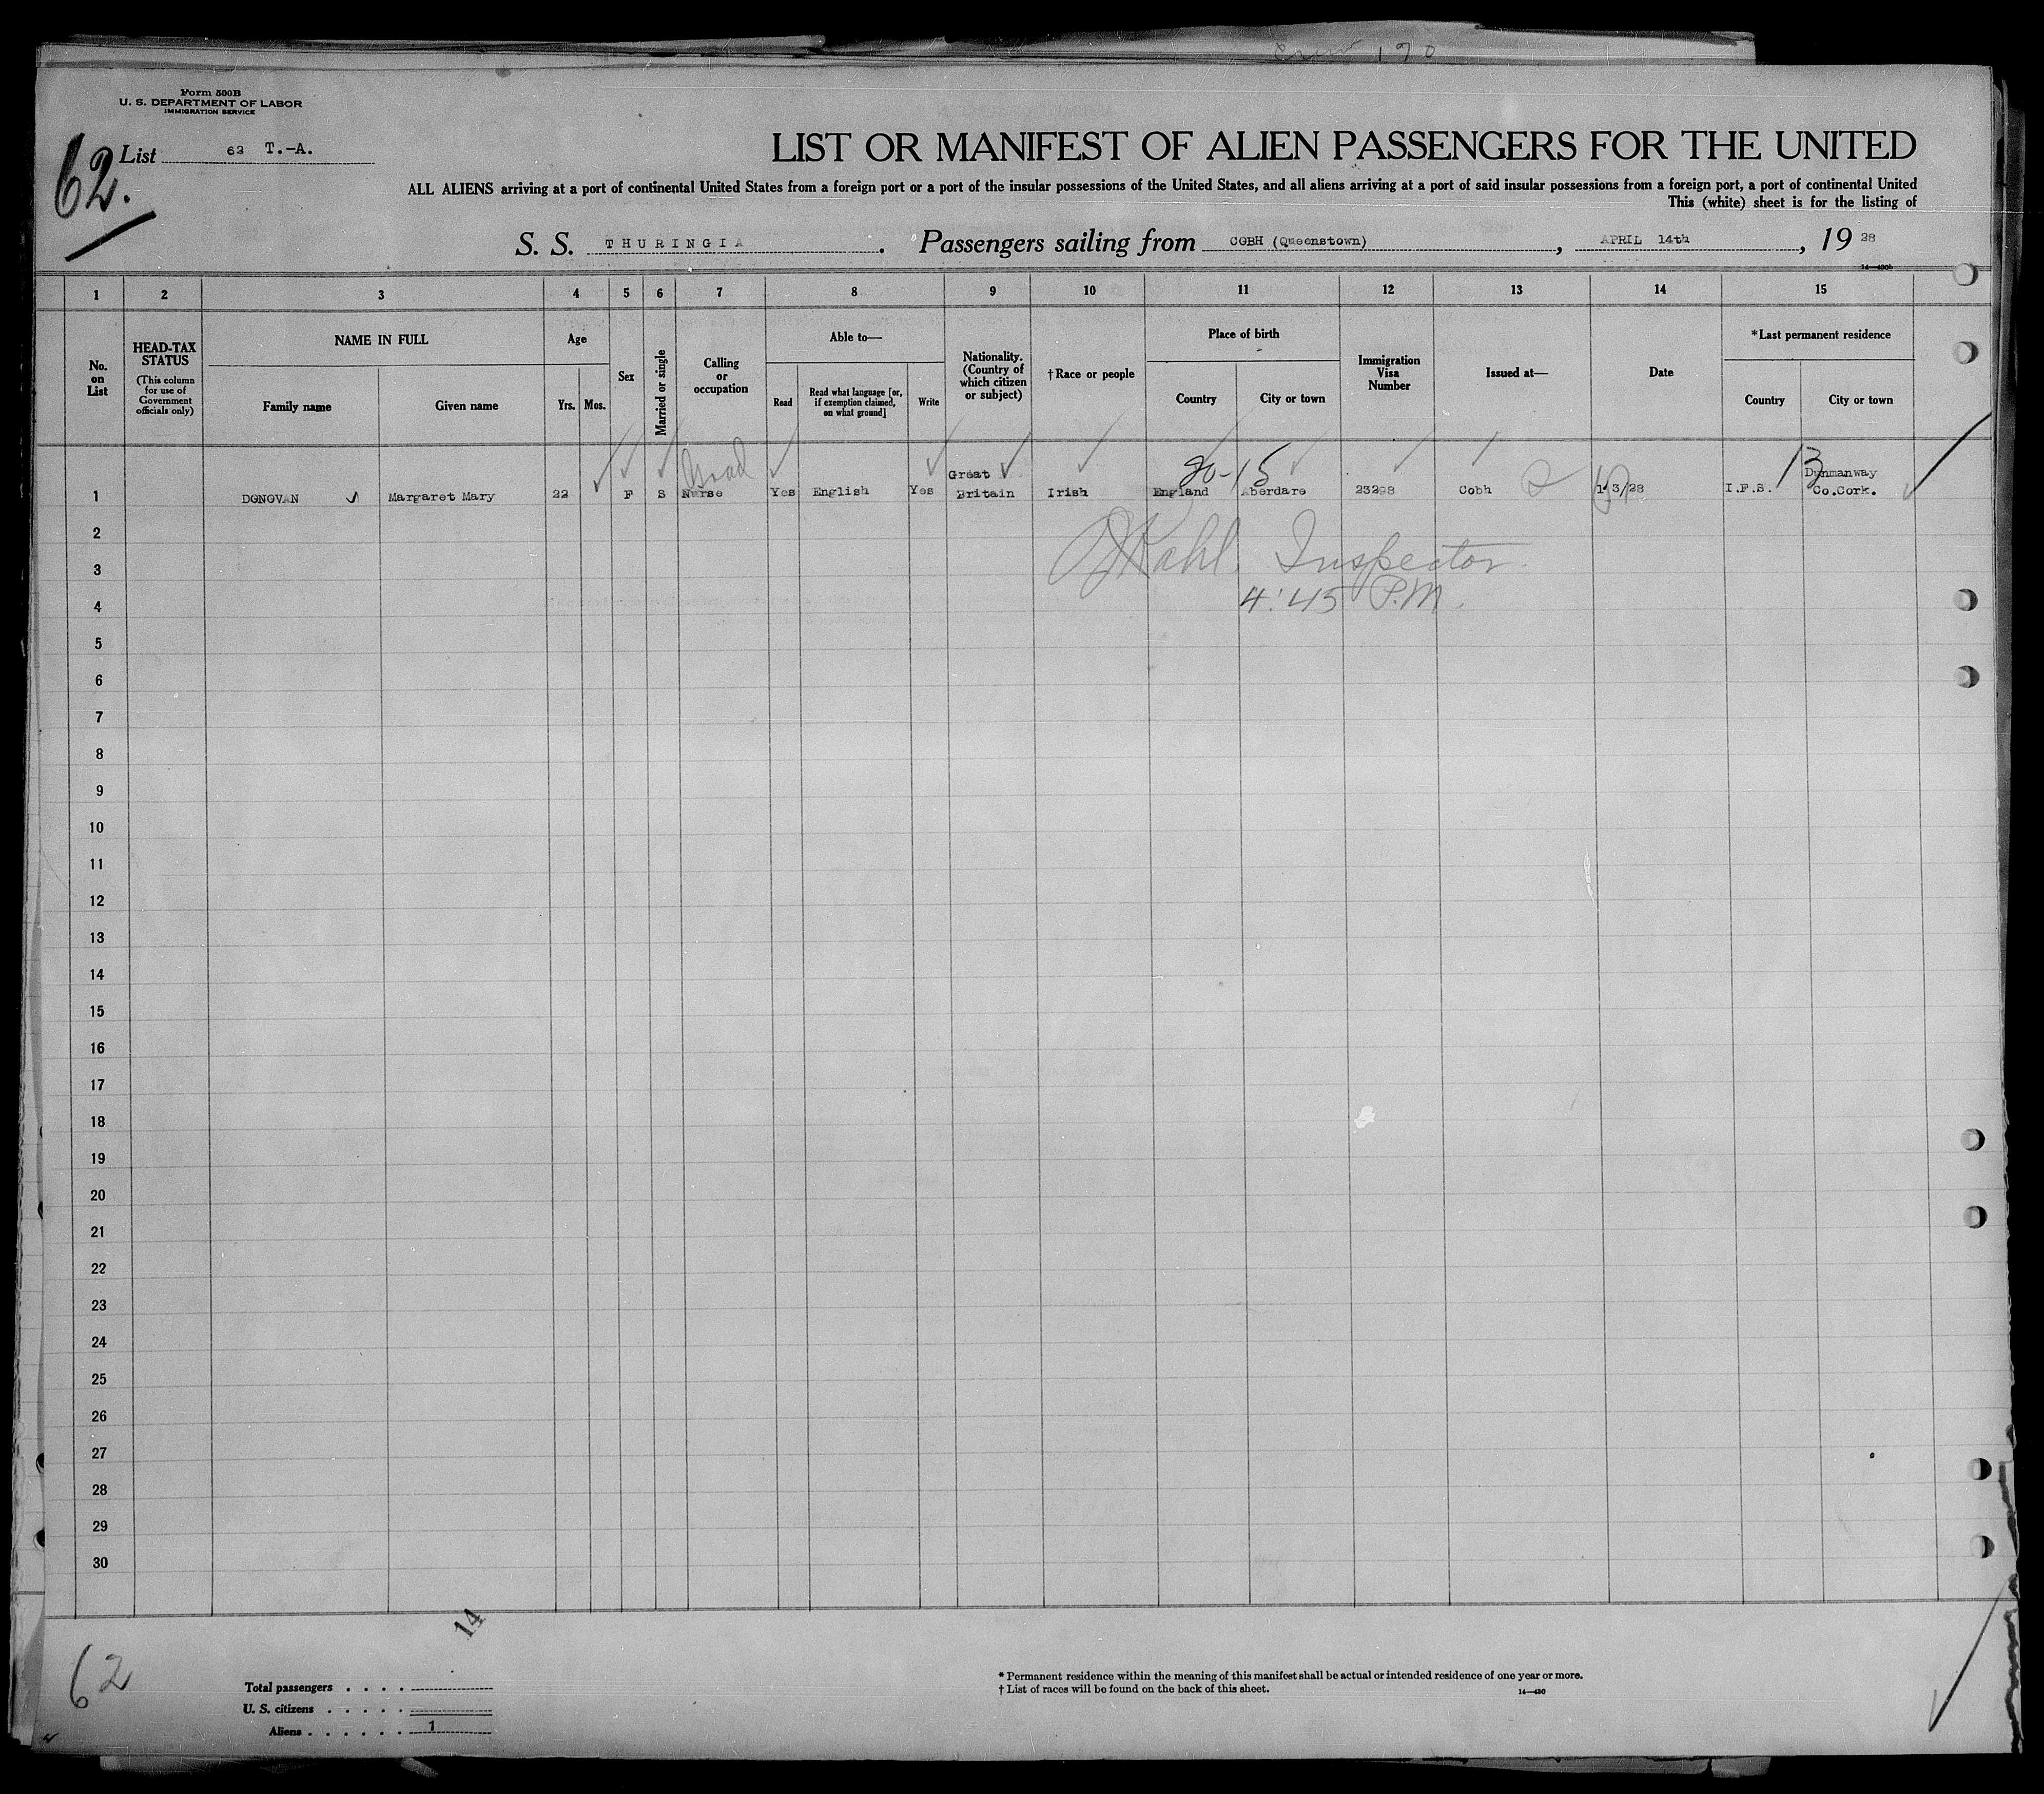 Crew 190
Form 500B
U. S. DEPARTMENT OF LABOR
IMMIGRATION SERVICE
62.
List 62 T.-A.
LIST OR MANIFEST OF ALIEN PASSENGERS FOR THE UNITED
ALL ALIENS arriving at a port of continental United States from a foreign port or a port of the insular possessions of the United States, and all aliens arriving at a port of said insular possessions from a foreign port, a port of continental United
This (white) sheet is for the listing of
S. S. THURINGIA. Passengers sailing from COBH (Queenstown), APRIL 14th, 19 28
14—430b
1 2 3 4 5 6 7 8 9 10 11 12 13 14 15
No. on List
HEAD-TAX STATUS
(This column for use of Government officials only)
NAME IN FULL
Family name Given name
Age
Yrs. Mos.
Sex
Married or single
Calling or occupation
Able to—
Read
Read what language [or, if exemption claimed, on what ground]
Write
Nationality. (Country of which citizen or subject)
†Race or people
Place of birth
Country City or town
Immigration Visa Number
Issued at—
Date
*Last permanent residence
Country City or town
Great 20-15 13 Dunmanway
1 DONOVAN Margaret Mary 22 F S Nurse Yes English Yes Britain Irish England Aberdare 23298 Cobh I.F.S. Co.Cork.
2
Kahl. Inspector
3
4:45 P.M.
4
5
6
7
8
9
10
11
12
13
14
15
16
17
18
19
20
21
22
23
24
25
26
27
28
29
30
14
62
Total passengers . . . .
U. S. citizens . . . . .
Aliens . . . . . . 1
* Permanent residence within the meaning of this manifest shall be actual or intended residence of one year or more.
† List of races will be found on the back of this sheet.
14—430